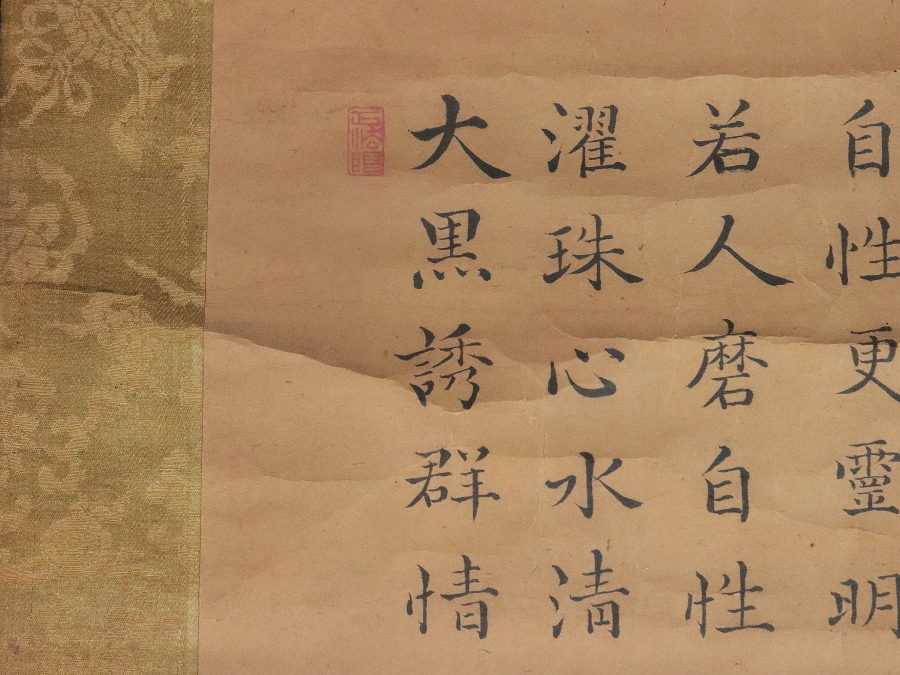 自性更霊明
若人磨自性
濯珠心水清
大黒誘群情